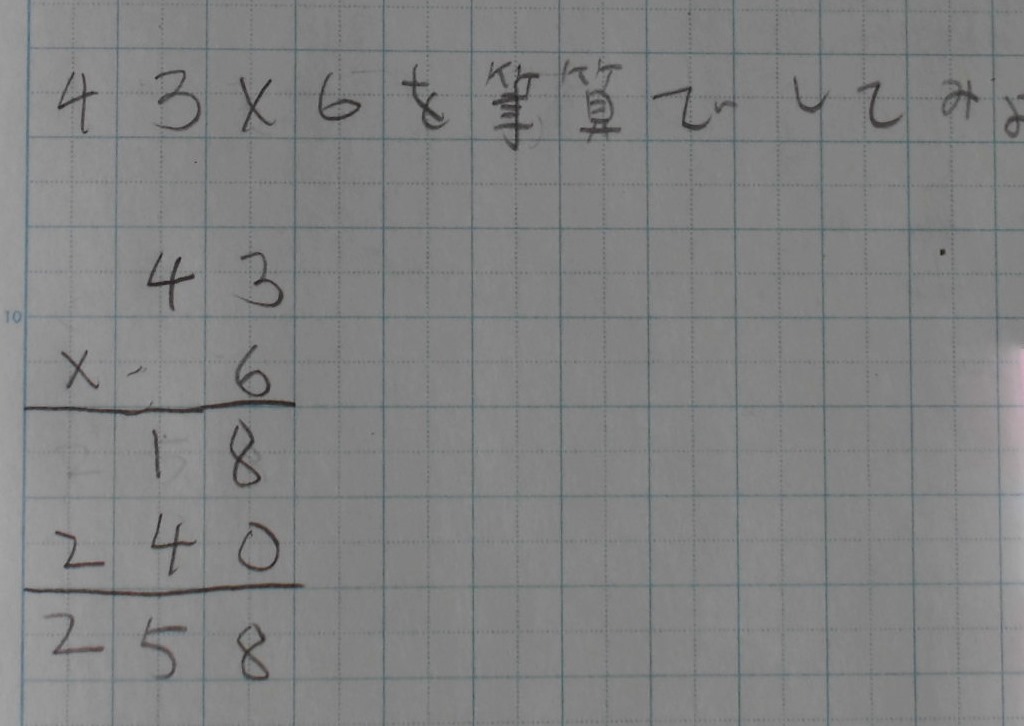 43×6を筆算でしてみよ
43
× 6
18
240
258
10